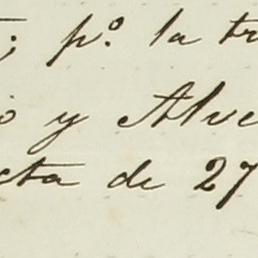 ; pº la tr
o y Alve
cta de 27